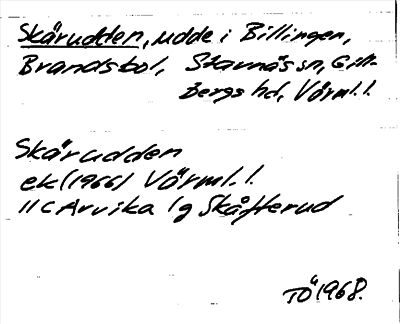 Skärudden, udde i Billingen,
Brandsbol, Stavnäs sn, Gill-
bergs hd, Värml. l.
Skärudden
ek (1966) Värml. l.
11 C Arvika 1g Skåfterud
TÖ 1968.